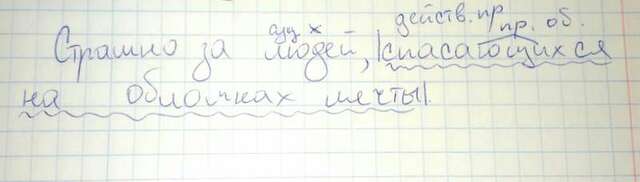 действ. пр.
сущ х пр. об.
Страшно за людей, |спасающихся
на обломках мечты|.